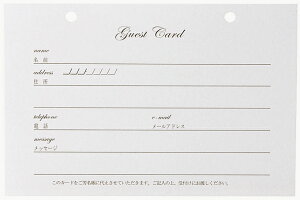 Guest Card
name
名 前
address
住 所
telephone e-mail
電 話 メールアドレス
message
メッセージ
このカードをご芳名帳に代えさせていただきます。ご記入の上、受付にお渡しください。